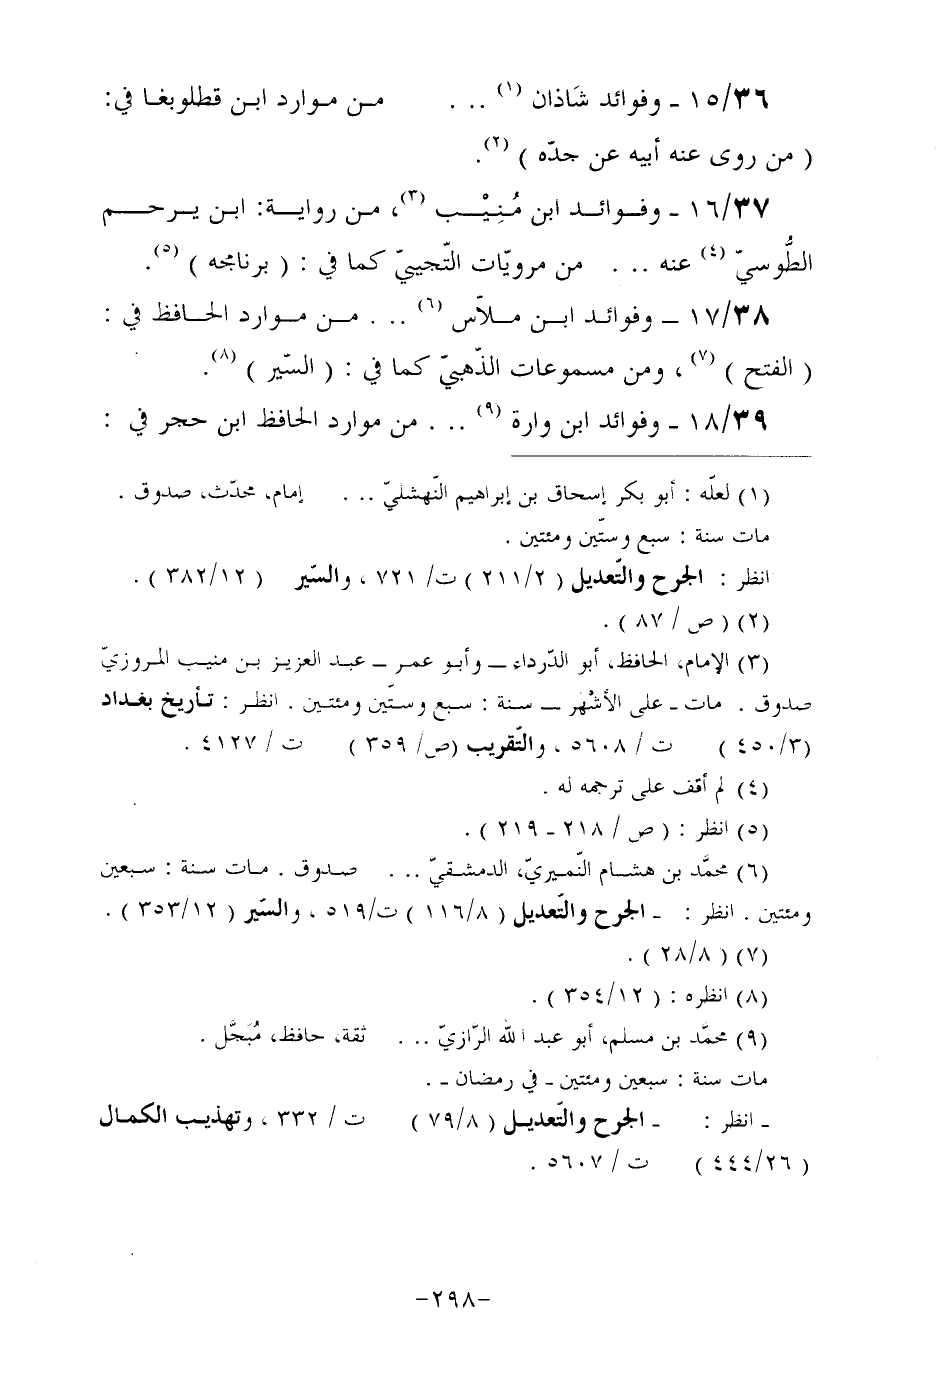 ١٥/٣٦ ـ وفوائد شَاذان (١) .. . من موارد ابن قطلوبغا في:
( من روى عنه أبيه عن جدّه ) (٢).
١٦/٣٧ ـ وفوائد ابن مُنِيْب (٣)، من رواية: ابن يرحم
الطُّوسيّ (٤) عنه .. . من مرويّات التّجيبيّ كما في : ( برنامجه ) (٥).
١٧/٣٨ ــ وفوائد ابن ملاّس (٦) .. . من موارد الحافظ في :
( الفتح ) (٧) ، ومن مسموعات الذّهبيّ كما في : ( السّير ) (٨).
١٨/٣٩ ـ وفوائد ابن وارة (٩) .. . من موارد الحافظ ابن حجر في :
(١) لعلّه : أبو بكر إسحاق بن إبراهيم النّهشليّ .. . إمام، محدّث، صدوق .
مات سنة : سبع وستّين ومئتين .
انظر : الجرح والتّعديل ( ٢١١/٢ ) ت/ ٧٢١ ، والسّير ( ٣٨٢/١٢ ) .
(٢) ( ص / ٨٧ ) .
(٣) الإمام، الحافظ، أبو الدّرداء ــ وأبو عمر ــ عبد العزيز بن منيب المروزيّ
صدوق . مات ـ على الأشْهر ــ سنة : سبع وستّين ومئتين . انظر : تأريخ بغداد
(٤٥٠/٣ ) ت / ٥٦٠٨ ، والتّقريب (ص/ ٣٥٩ ) ت / ٤١٢٧ .
(٤) لم أقف على ترجمه له .
(٥) انظر : ( ص / ٢١٨ ـ ٢١٩ ) .
(٦) محمَّد بن هشام النّميريّ، الدمشقيّ .. . صدوق . مات سنة : سبعين
ومئتين . انظر : ـ الجرح والتّعديل ( ١١٦/٨ ) ت/٥١٩ ، والسّير ( ٣٥٣/١٢ ) .
(٧) ( ٢٨/٨ ) .
(٨) انظره : ( ٣٥٤/١٢ ) .
(٩) محمّد بن مسلم، أبو عبد الله الرّازيّ .. . ثقة، حافظ، مُبَجَّل .
مات سنة : سبعين ومئتين ـ في رمضان ـ .
ـ انظر : ـ الجرح والتّعديل ( ٧٩/٨ ) ت / ٣٣٢ ، وتهذيب الكمال
( ٤٤٤/٢٦ ) ت / ٥٦٠٧ .
-٢٩٨-